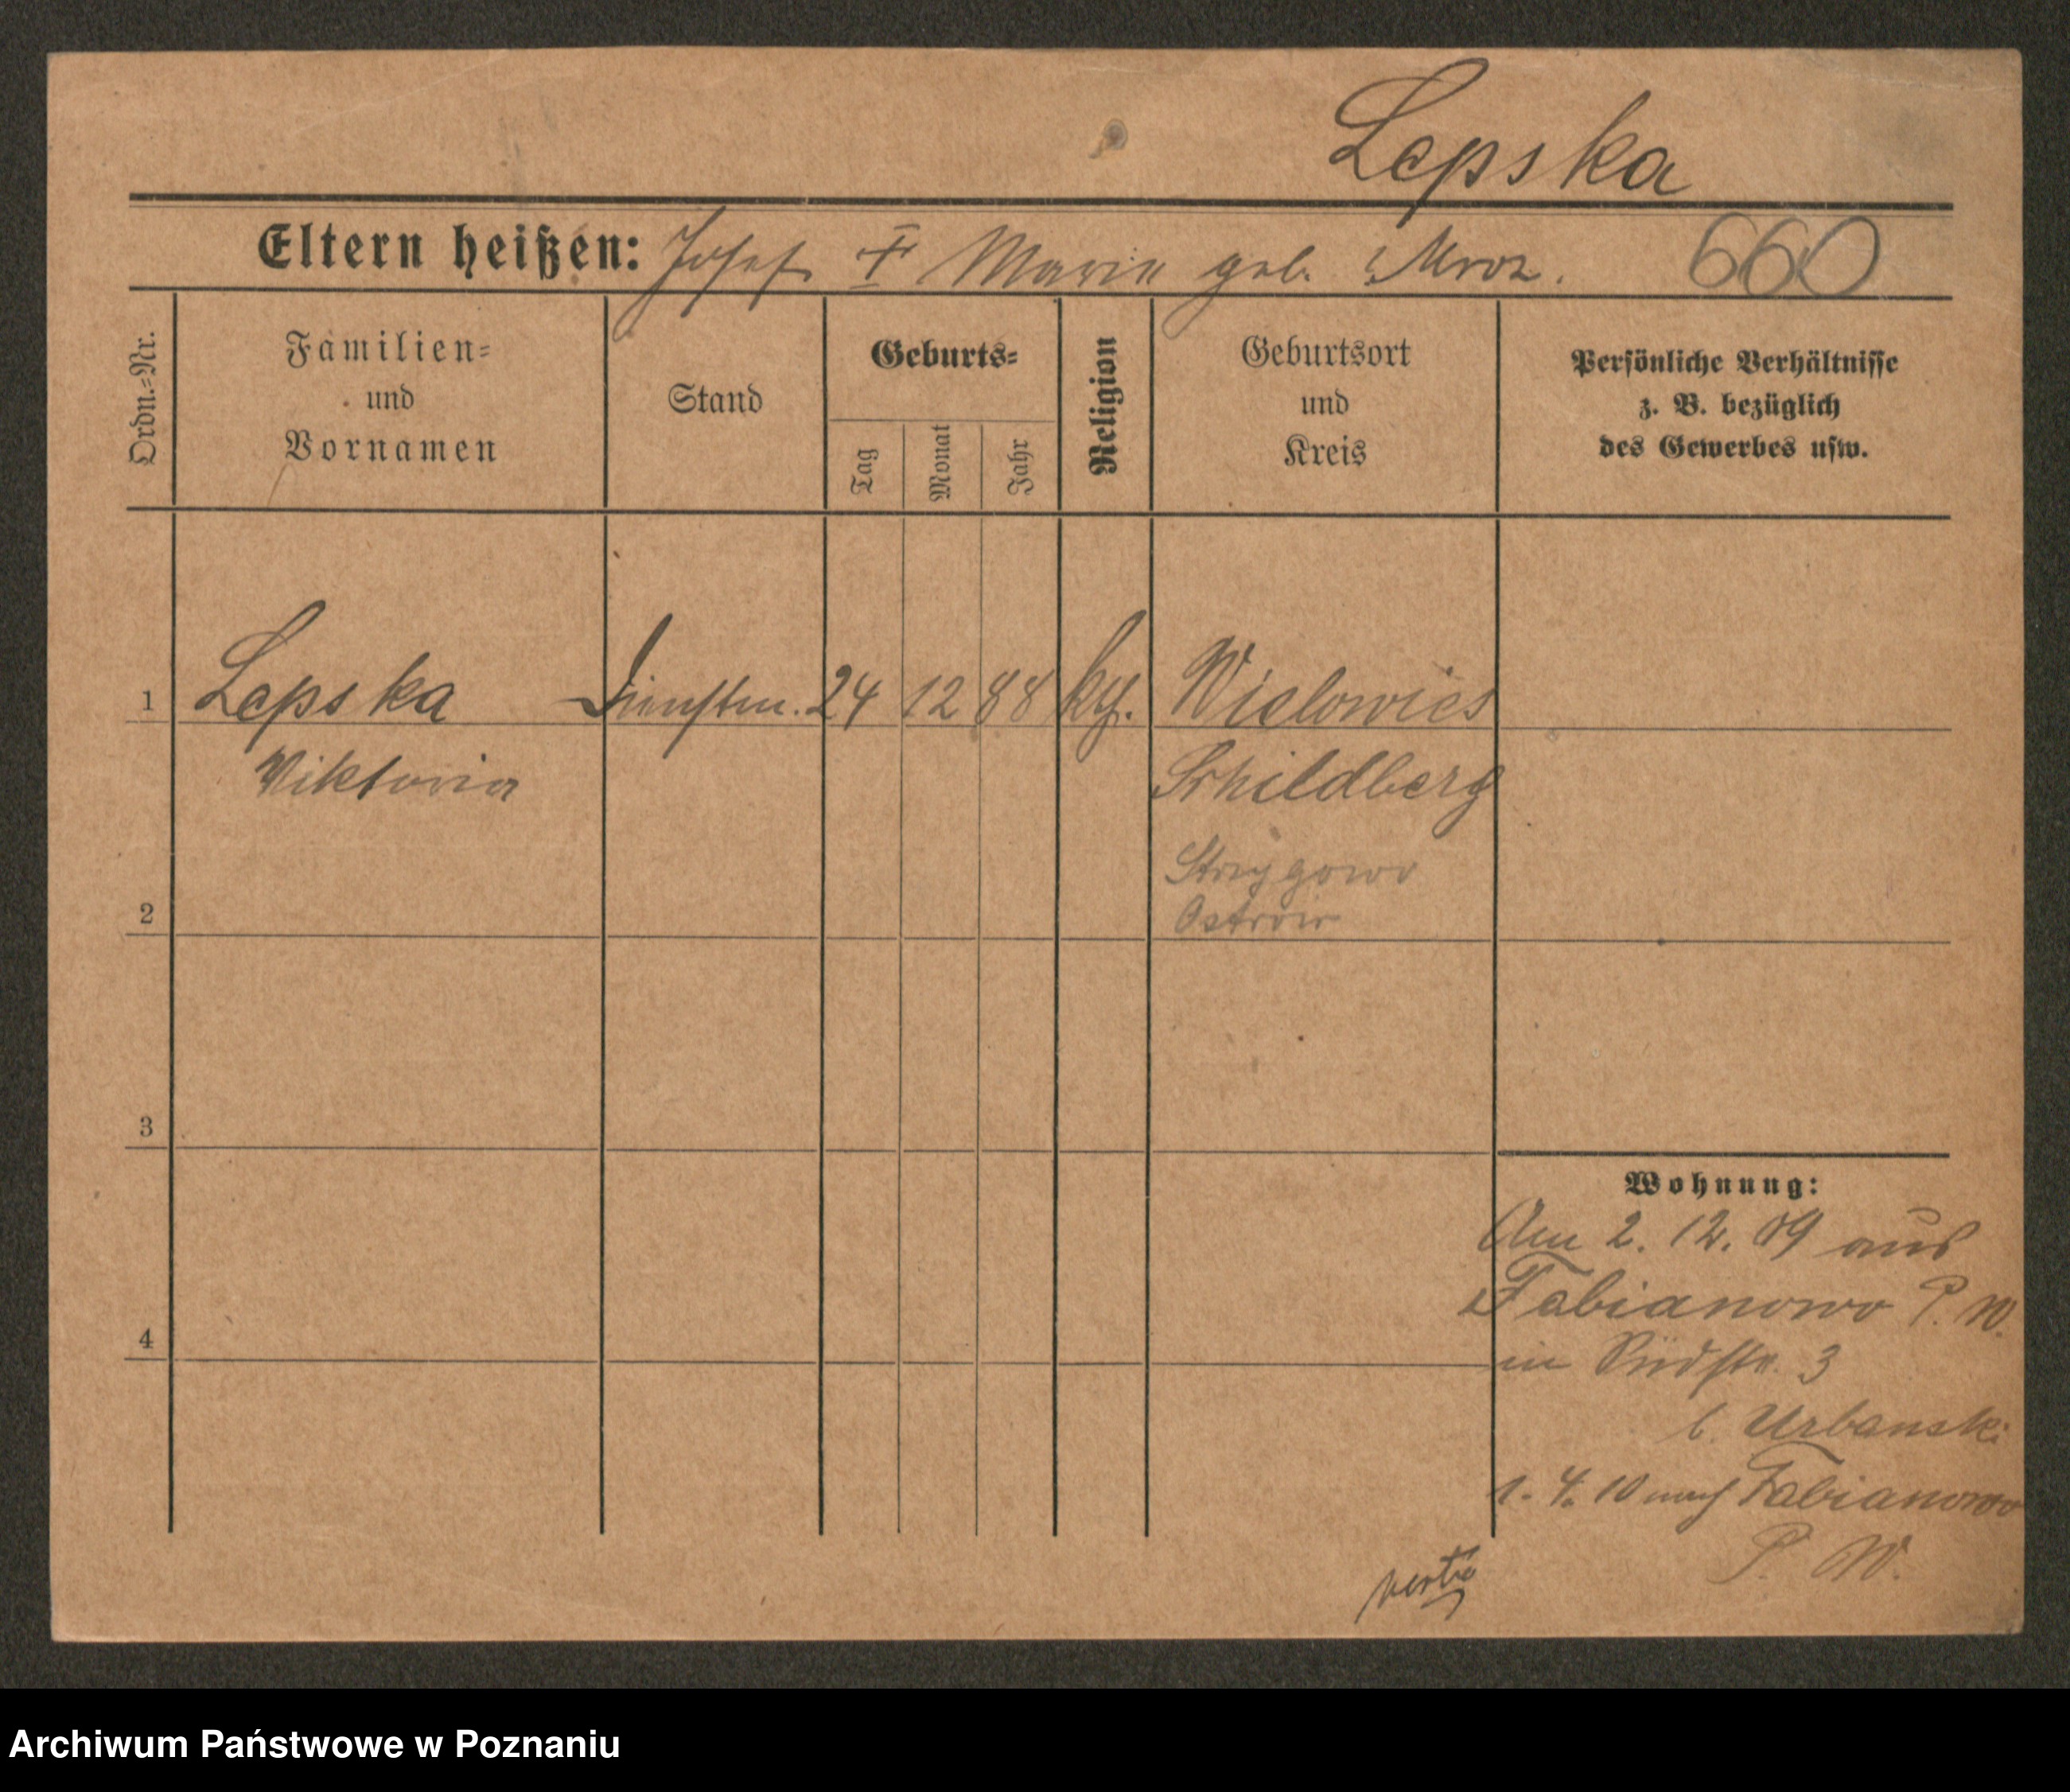 Lepska
Eltern heißen: Josef † Marie geb. Mroz. 660
Ordn.=Nr.
Familien=
und
Vornamen
Stand
Geburts=
Tag
Monat
Jahr
Religion
Geburtsort
und
Kreis
Persönliche Verhältnisse
z. B. bezüglich
des Gewerbes usw.
1 Lepska Dienstm. 24 12 88 kth. Wielowies
Viktoria Schildberg
Strzygowo
2 Ostrow
3
Wohnung:
Am 2. 12. 09 aus
Fabianowo P. W.
4
in Südstr. 3
b. Urbanski
1. 4. 10 nach Fabianowo
P. W.
verte
Archiwum Państwowe w Poznaniu